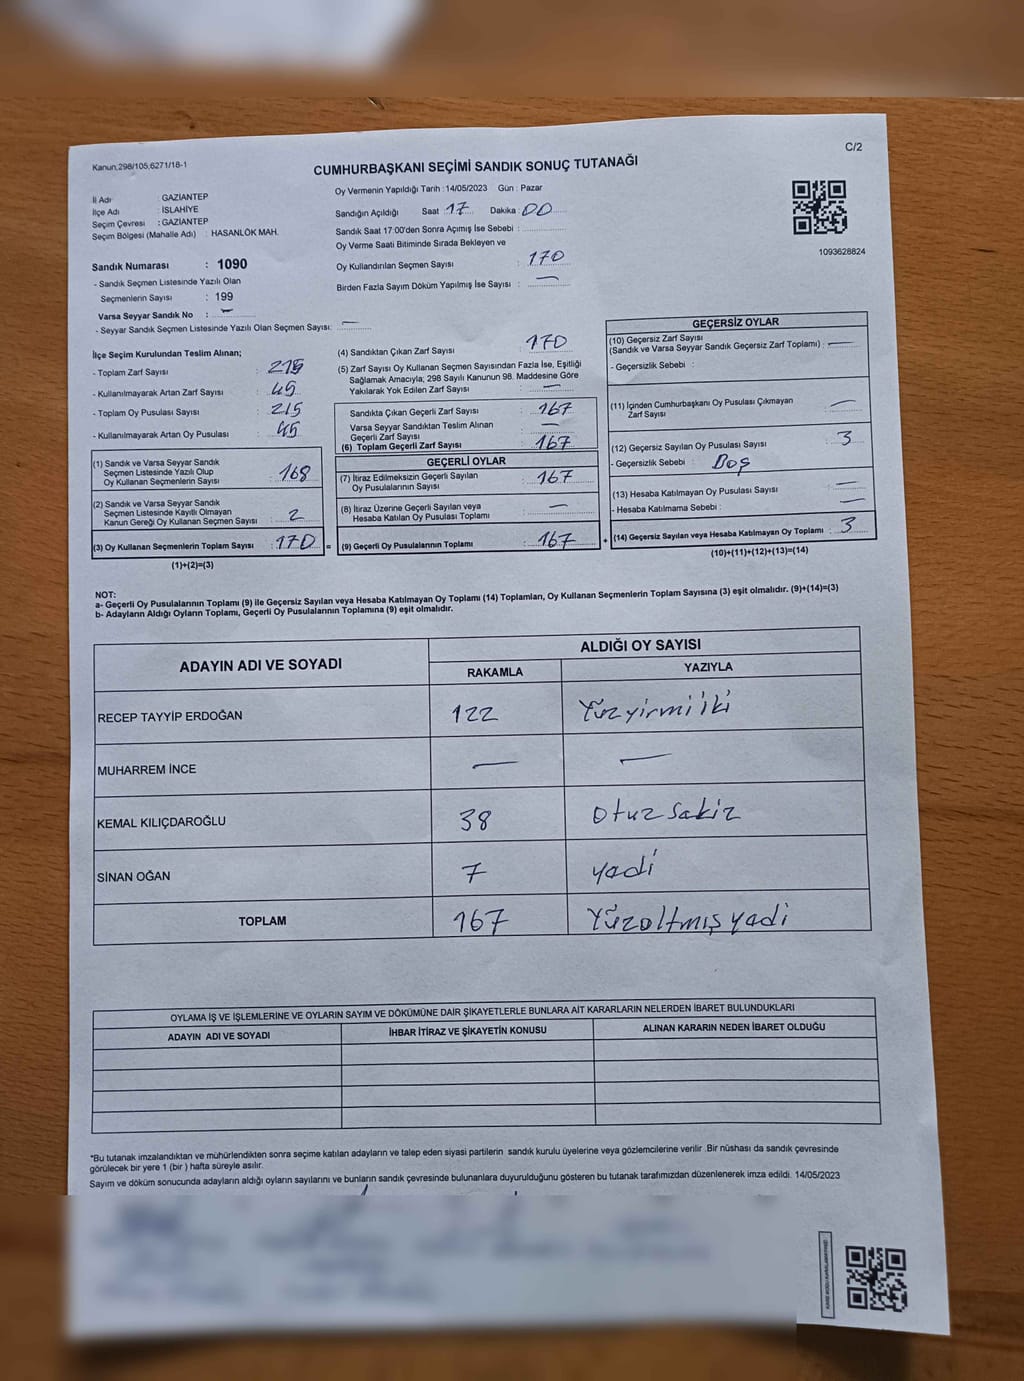 Kanun:298/105,6271/18-1
C/2
CUMHURBAŞKANI SEÇİMİ SANDIK SONUÇ TUTANAĞI
İl Adı : GAZİANTEP
İlçe Adı : İSLAHİYE
Seçim Çevresi : GAZİANTEP
Seçim Bölgesi (Mahalle Adı) : HASANLÖK MAH.
Oy Vermenin Yapıldığı Tarih : 14/05/2023 Gün : Pazar
Sandığın Açıldığı Saat : 17 Dakika : 00
Sandık Saat 17:00'den Sonra Açımış İse Sebebi :
Oy Verme Saati Bitiminde Sırada Bekleyen ve
Oy Kullandırılan Seçmen Sayısı : 170
Birden Fazla Sayım Döküm Yapılmış İse Sayısı : —
1093628824
Sandık Numarası : 1090
- Sandık Seçmen Listesinde Yazılı Olan
Seçmenlerin Sayısı : 199
Varsa Seyyar Sandık No : —
- Seyyar Sandık Seçmen Listesinde Yazılı Olan Seçmen Sayısı: —
İlçe Seçim Kurulundan Teslim Alınan;
- Toplam Zarf Sayısı : 215
- Kullanılmayarak Artan Zarf Sayısı : 45
- Toplam Oy Pusulası Sayısı : 215
- Kullanılmayarak Artan Oy Pusulası : 45
(1) Sandık ve Varsa Seyyar Sandık
Seçmen Listesinde Yazılı Olup
Oy Kullanan Seçmenlerin Sayısı : 168
(2) Sandık ve Varsa Seyyar Sandık
Seçmen Listesinde Kayıtlı Olmayan
Kanun Gereği Oy Kullanan Seçmen Sayısı : 2
(3) Oy Kullanan Seçmenlerin Toplam Sayısı : 170
(1)+(2)=(3)
(4) Sandıktan Çıkan Zarf Sayısı : 170
(5) Zarf Sayısı Oy Kullanan Seçmen Sayısından Fazla İse, Eşitliği
Sağlamak Amacıyla; 298 Sayılı Kanunun 98. Maddesine Göre
Yakılarak Yok Edilen Zarf Sayısı : —
Sandıkta Çıkan Geçerli Zarf Sayısı : 167
Varsa Seyyar Sandıktan Teslim Alınan
Geçerli Zarf Sayısı : —
(6) Toplam Geçerli Zarf Sayısı : 167
GEÇERLİ OYLAR
(7) İtiraz Edilmeksizin Geçerli Sayılan
Oy Pusulalarının Sayısı : 167
(8) İtiraz Üzerine Geçerli Sayılan veya
Hesaba Katılan Oy Pusulası Toplamı : —
= (9) Geçerli Oy Pusulalarının Toplamı : 167 +
GEÇERSİZ OYLAR
(10) Geçersiz Zarf Sayısı
(Sandık ve Varsa Seyyar Sandık Geçersiz Zarf Toplamı) : —
- Geçersizlik Sebebi :
(11) İçinden Cumhurbaşkanı Oy Pusulası Çıkmayan
Zarf Sayısı : —
(12) Geçersiz Sayılan Oy Pusulası Sayısı : 3
- Geçersizlik Sebebi : Boş
(13) Hesaba Katılmayan Oy Pusulası Sayısı : —
- Hesaba Katılmama Sebebi : —
(14) Geçersiz Sayılan veya Hesaba Katılmayan Oy Toplamı : 3
(10)+(11)+(12)+(13)=(14)
NOT:
a- Geçerli Oy Pusulalarının Toplamı (9) ile Geçersiz Sayılan veya Hesaba Katılmayan Oy Toplamı (14) Toplamları, Oy Kullanan Seçmenlerin Toplam Sayısına (3) eşit olmalıdır. (9)+(14)=(3)
b- Adayların Aldığı Oyların Toplamı, Geçerli Oy Pusulalarının Toplamına (9) eşit olmalıdır.
ADAYIN ADI VE SOYADI
ALDIĞI OY SAYISI
RAKAMLA YAZIYLA
RECEP TAYYİP ERDOĞAN 122 Yüzyirmiiki
MUHARREM İNCE — —
KEMAL KILIÇDAROĞLU 38 otuzsakiz
SİNAN OĞAN 7 yadi
TOPLAM 167 Yüzaltmışyadi
OYLAMA İŞ VE İŞLEMLERİNE VE OYLARIN SAYIM VE DÖKÜMÜNE DAİR ŞİKAYETLERLE BUNLARA AİT KARARLARIN NELERDEN İBARET BULUNDUKLARI
ADAYIN ADI VE SOYADI İHBAR İTİRAZ VE ŞİKAYETİN KONUSU ALINAN KARARIN NEDEN İBARET OLDUĞU
*Bu tutanak imzalandıktan ve mühürlendikten sonra seçime katılan adayların ve talep eden siyasi partilerin sandık kurulu üyelerine veya gözlemcilerine verilir .Bir nüshası da sandık çevresinde
görülecek bir yere 1 (bir ) hafta süreyle asılır.
Sayım ve döküm sonucunda adayların aldığı oyların sayılarını ve bunların sandık çevresinde bulunanlara duyurulduğunu gösteren bu tutanak tarafımızdan düzenlenerek imza edildi. 14/05/2023